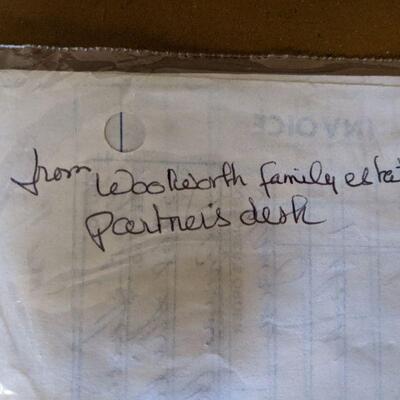 INVOICE
from Woolworth family esta
partner's desk